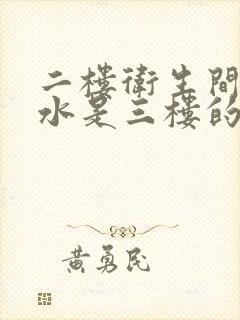 二樓衛生間
水是三樓的
黄勇民